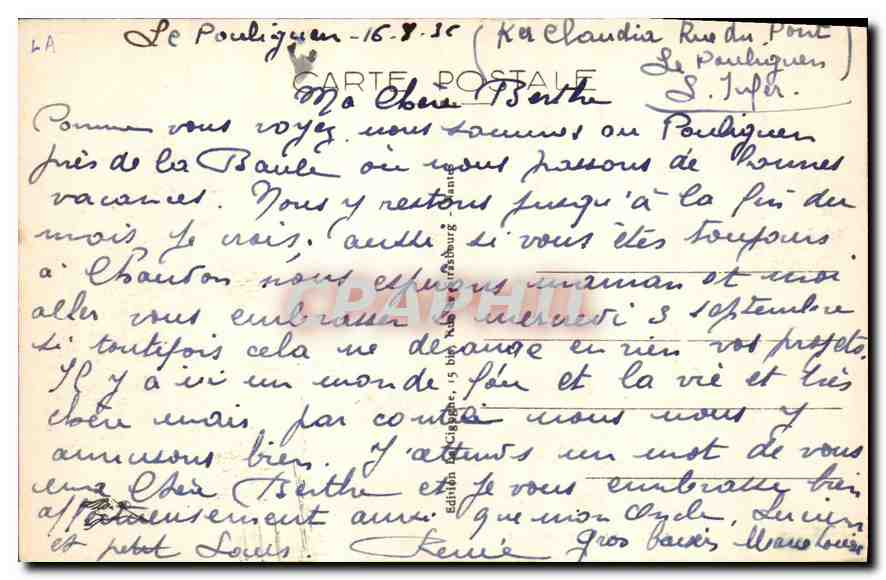 LA
Le Pouliguen - 16.8.36
(Ker Claudia Rue du Pont
Le Pouliguen)
L. Infer.
CARTE POSTALE
Ma Chère Berthe
Comme vous voyez nous sommes au Pouliguen
près de la Baule où nous passons de bonnes
vacances. Nous y restons jusqu'à la fin du
mois je crois. aussi si vous êtes toujours
à nous espérons maman et moi
aller vous embrasser le mercredi 3 septembre
si toutefois cela ne dérange en rien vos projets.
Il y a ici un monde fou et la vie et très
chère mais par contre nous nous y
amusons bien. J'attends un mot de vous
ma Chère Berthe et je vous embrasse bien
affectueusement ainsi que mon Oncle, Lucien
et petit Louis. Renée gros baisers Marie Louise
Edition La Cigogne, 15 bis, Rue de Strasbourg - Nantes
CPAPHIL